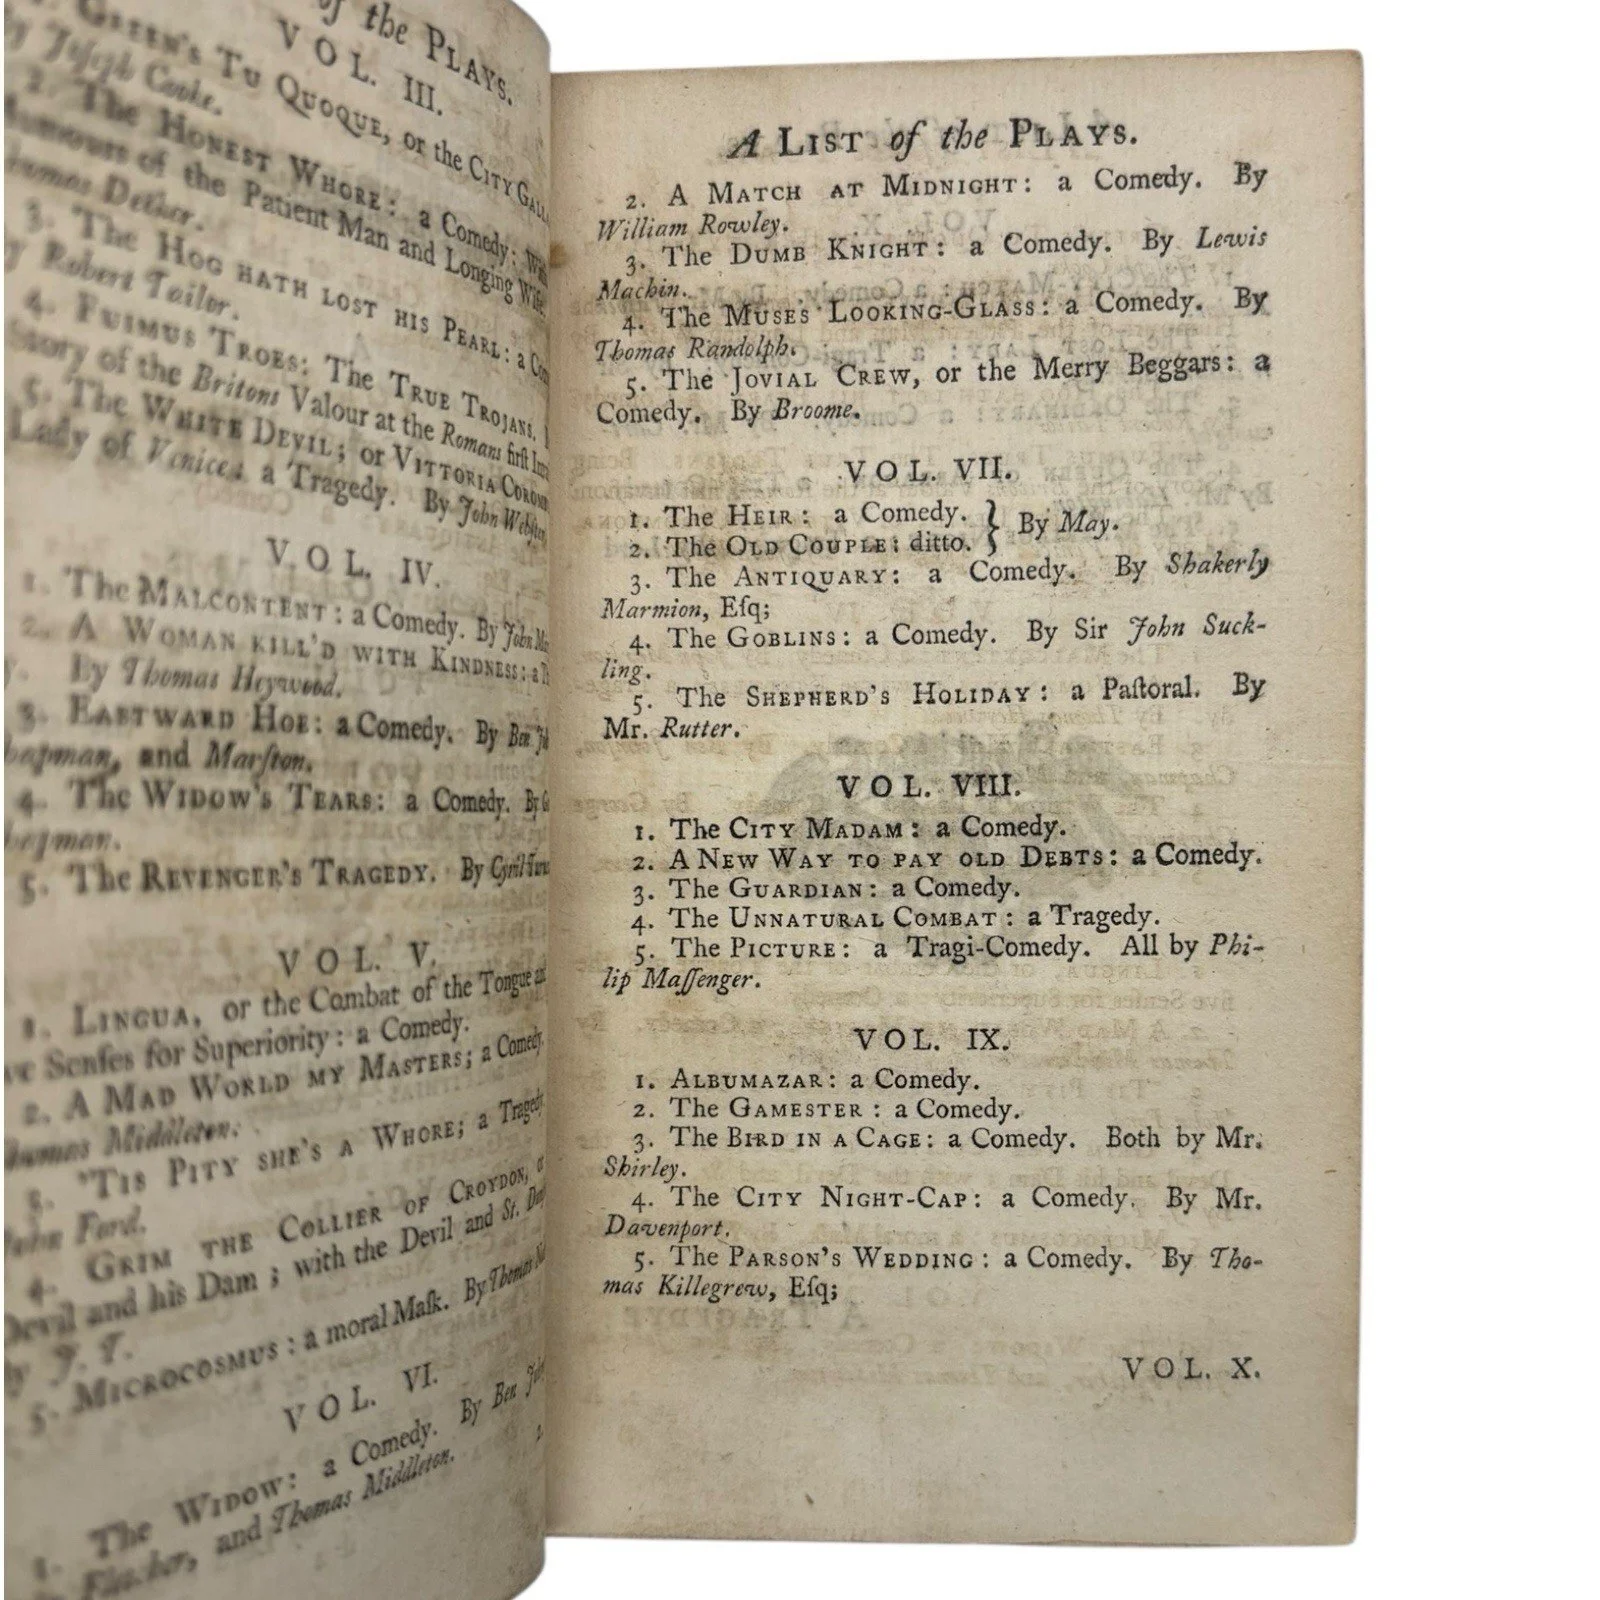 of the PLAYS.
VOL. III.
GREEN'S TU QUOQUE, or the CITY
by Joseph Cooke.
2. The HONEST WHORE: a Comedy: With
Humours of the Patient Man and Longing Wife.
Thomas Decker.
3. The HOG HATH LOST HIS PEARL: a
by Robert Tailor.
4. FUIMUS TROES: The TRUE TROJANS.
Story of the Britons Valour at the Romans first
5. The WHITE DEVIL; or VITTORIA
Lady of Venice: a Tragedy. By John Webster.
VOL. IV.
1. The MALCONTENT: a Comedy. By John
2. A WOMAN KILL'D WITH KINDNESS: a
By Thomas Heywood.
3. EASTWARD HOE: a Comedy. By Ben
Chapman, and Marſton.
4. The WIDOW'S TEARS: a Comedy. By
Chapman.
5. The REVENGER'S TRAGEDY. By Cyril
VOL. V.
1. LINGUA, or the Combat of the Tongue and
five Senſes for Superiority: a Comedy.
2. A MAD WORLD MY MASTERS; a Comedy.
Thomas Middleton.
3. 'TIS PITY SHE'S A WHORE; a Tragedy
John Ford.
4. GRIM THE COLLIER OF CROYDON, or
Devil and his Dam; with the Devil and St.
by J. T.
5. MICROCOSMUS: a moral Maſk. By Thomas
VOL. VI.
1. The WIDOW: a Comedy. By Ben
Fletcher, and Thomas Middleton.
2.
A LIST of the PLAYS.
2. A MATCH AT MIDNIGHT: a Comedy. By
William Rowley.
3. The DUMB KNIGHT: a Comedy. By Lewis
Machin.
4. The MUSES LOOKING-GLASS: a Comedy. By
Thomas Randolph.
5. The JOVIAL CREW, or the Merry Beggars: a
Comedy. By Broome.
VOL. VII.
1. The HEIR: a Comedy. } By May.
2. The OLD COUPLE: ditto.
3. The ANTIQUARY: a Comedy. By Shakerly
Marmion, Eſq;
4. The GOBLINS: a Comedy. By Sir John Suck-
ling.
5. The SHEPHERD'S HOLIDAY: a Paſtoral. By
Mr. Rutter.
VOL. VIII.
1. The CITY MADAM: a Comedy.
2. A NEW WAY TO PAY OLD DEBTS: a Comedy.
3. The GUARDIAN: a Comedy.
4. The UNNATURAL COMBAT: a Tragedy.
5. The PICTURE: a Tragi-Comedy. All by Phi-
lip Maſſenger.
VOL. IX.
1. ALBUMAZAR: a Comedy.
2. The GAMESTER: a Comedy.
3. The BIRD IN A CAGE: a Comedy. Both by Mr.
Shirley.
4. The CITY NIGHT-CAP: a Comedy. By Mr.
Davenport.
5. The PARSON'S WEDDING: a Comedy. By Tho-
mas Killegrew, Eſq;
VOL. X.